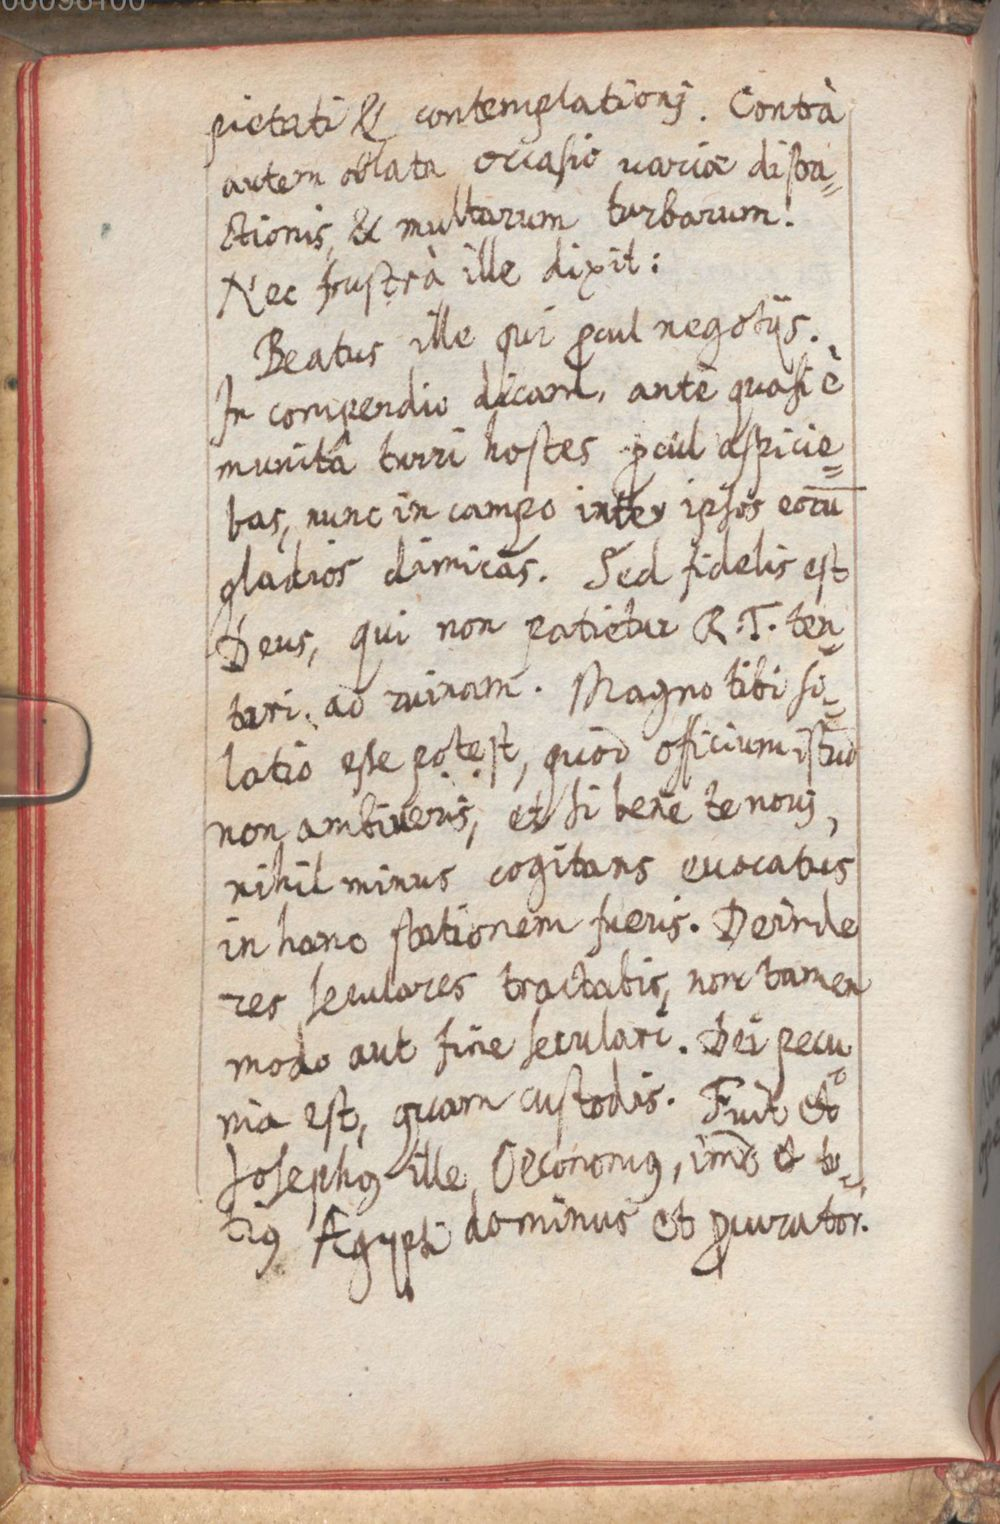 00098100
pietati & contemplationj. Contrà
autem oblata occasio variæ distra=
ctionis, & multarum turbarum.
Nec frustrà ille dixit:
Beatus ille qui ꝓcul negotijs.
In compendio dicam, ante quasi è
munitâ turri hostes ꝓcul aspicie=
bas, nunc in campo inter ipsos eorū
gladios dimicas. Sed fidelis est
Deus, qui non patietur R.T. ten
tari ad ruinam. Magno tibi so=
latio esse potest, quòd officium istud
non ambiveris, et si bene te novj,
nihil minus cogitans evocatus
in hanc stationem fueris. Deinde
res seculares tractabis, non tamen
modo aut fine seculari. Dei pecu
nia est, quam custodis. Fuit et
Josephꝰ ille Oeconomꝰ, imò et to=
tiꝰ Ægypti dominus et ꝓcurator.